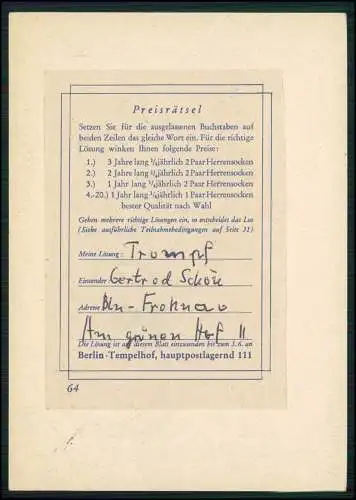 Preisrätsel
Setzen Sie für die ausgelassenen Buchstaben auf
beiden Zeilen das gleiche Wort ein. Für die richtige
Lösung winken Ihnen folgende Preise:
1.) 3 Jahre lang ¼jährlich 2 Paar Herrensocken
2.) 2 Jahre lang ¼jährlich 2 Paar Herrensocken
3.) 1 Jahr lang ¼jährlich 2 Paar Herrensocken
4.-20.) 1 Jahr lang ¼jährlich 1 Paar Herrensocken
bester Qualität nach Wahl
Gehen mehrere richtige Lösungen ein, so entscheidet das Los
(Siehe ausführliche Teilnahmebedingungen auf Seite 31)
Meine Lösung: Trumpf
Einsender Gertrud Schön
Adresse Bln-Frohnau
Am grünen Hof 11
Die Lösung ist auf diesem Blatt einzusenden bis zum 1.6. an
Berlin-Tempelhof, hauptpostlagernd 111
64